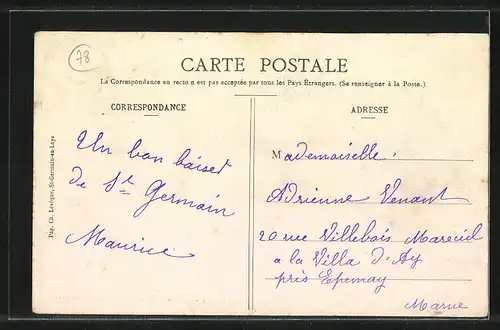 78
CARTE POSTALE
La Correspondance au recto n est pas acceptée par tous les Pays Étrangers. (Se renseigner à la Poste.)
CORRESPONDANCE
Un bon baiser
de St Germain
Maurice
Pap. Ch. Lévêque, St-Germain-en-Laye
ADRESSE
Mademoiselle
Adrienne Venant
20 rue Villebois Mareuil
a la Villa d'Ay
près Epernay
Marne